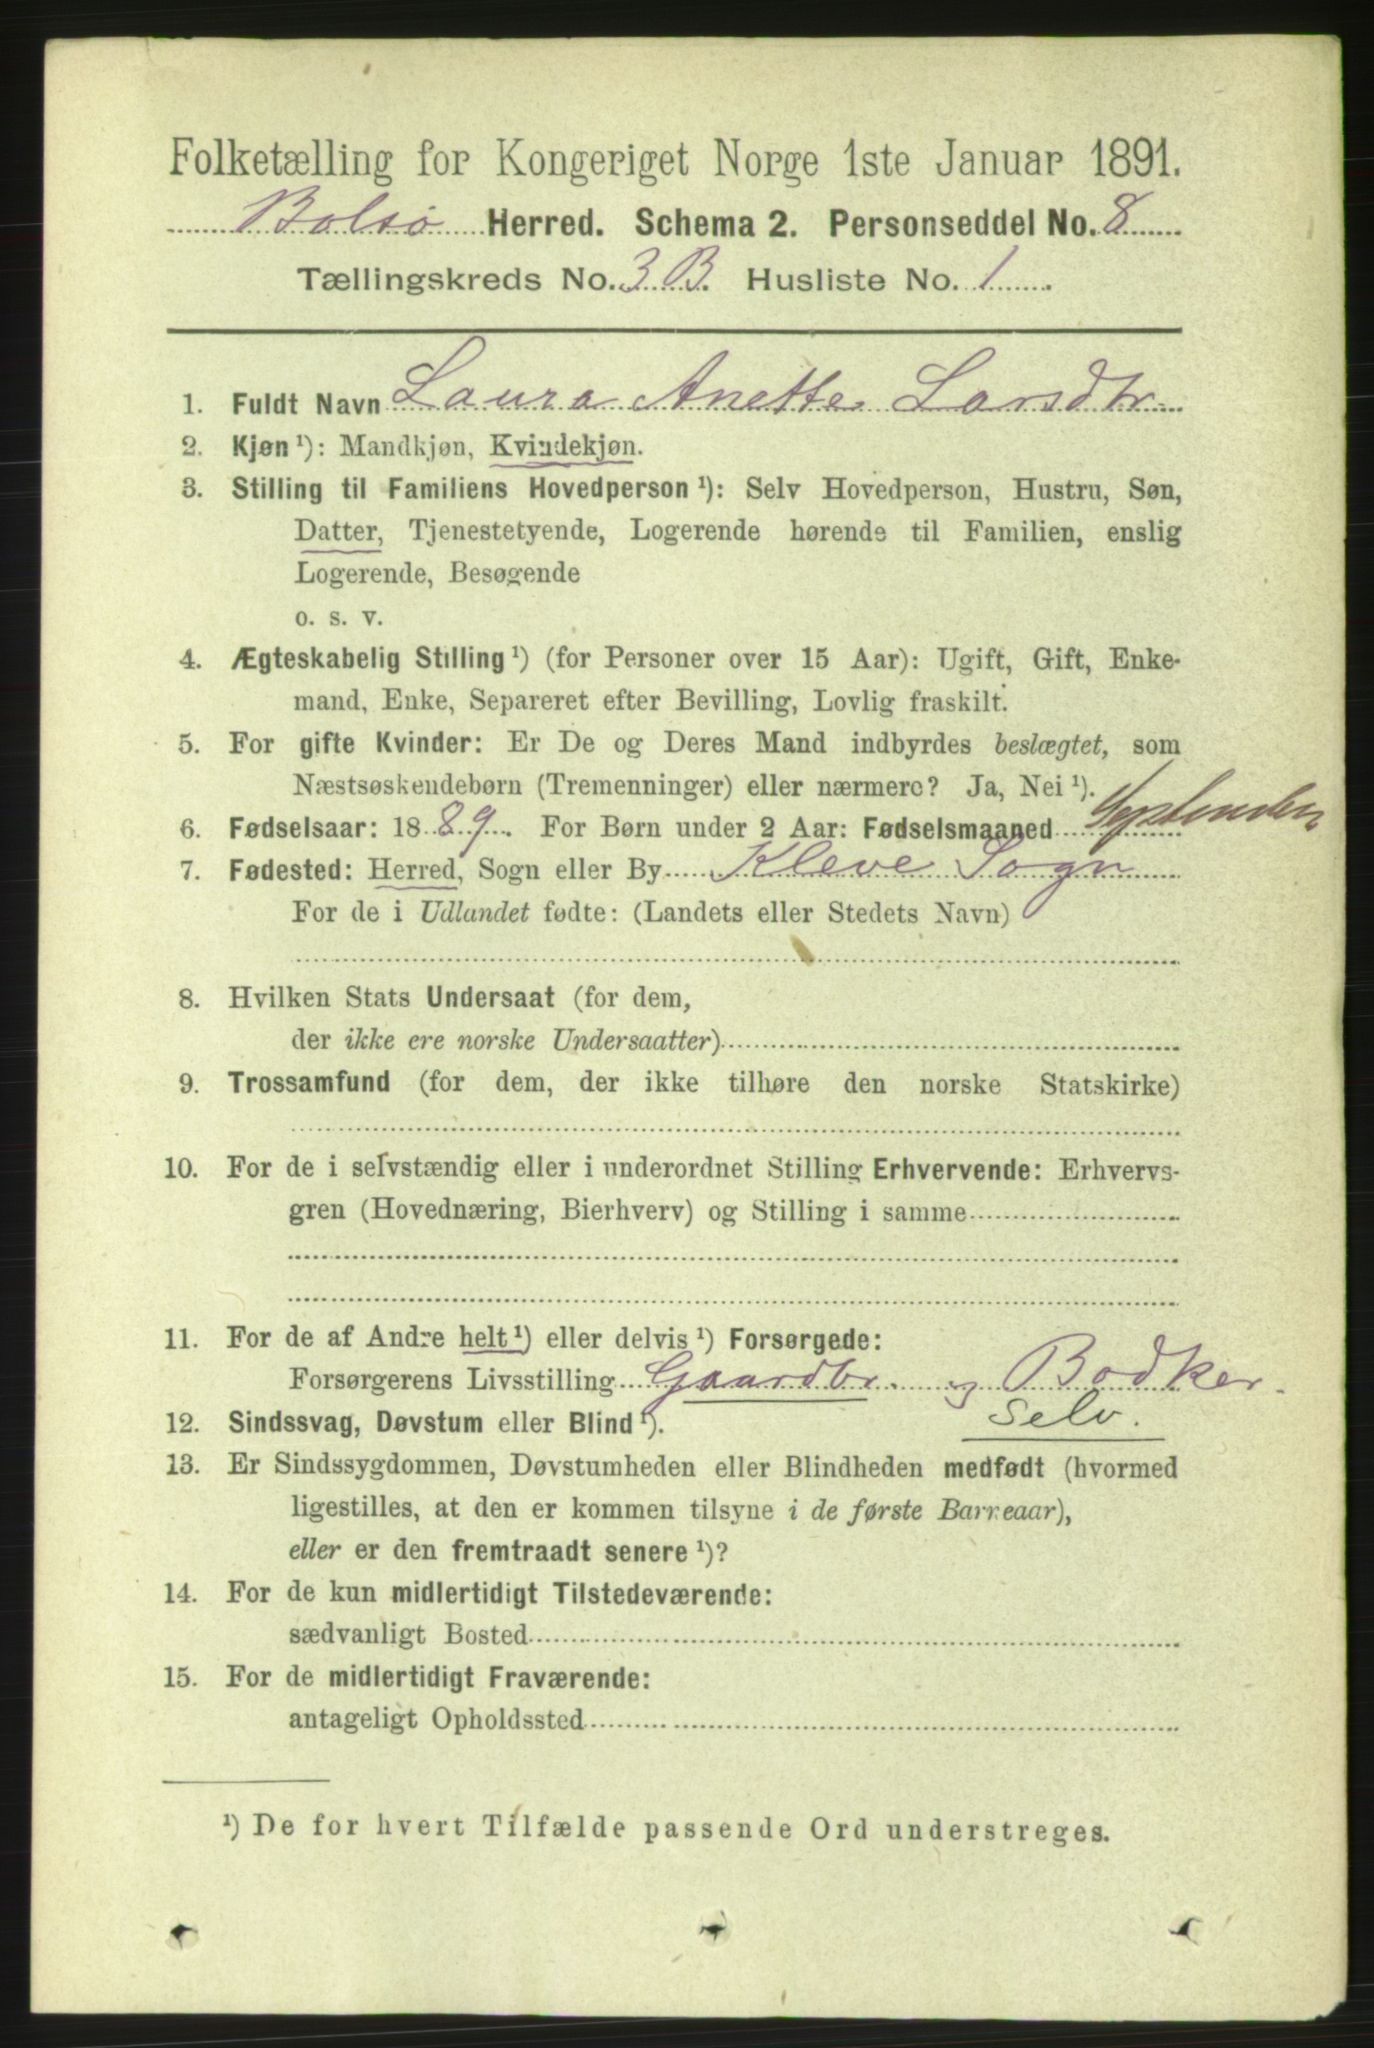 Folketælling for Kongeriget Norge 1ste Januar 1891.
Bolsø Herred. Schema 2. Personseddel No. 8
Tællingskreds No. 3 B. Husliste No. 1
1. Fuldt Navn Laura Anette Larsdtr
2. Kjøn ¹): Mandkjøn, Kvindekjøn.
3. Stilling til Familiens Hovedperson ¹): Selv Hovedperson, Hustru, Søn,
Datter, Tjenestetyende, Logerende hørende til Familien, enslig
Logerende, Besøgende
o. s. v.
4. Ægteskabelig Stilling ¹) (for Personer over 15 Aar): Ugift, Gift, Enke-
mand, Enke, Separeret efter Bevilling, Lovlig fraskilt.
5. For gifte Kvinder: Er De og Deres Mand indbyrdes beslægtet, som
Næstsøskendebørn (Tremenninger) eller nærmere? Ja, Nei ¹).
6. Fødselsaar: 1889. For Børn under 2 Aar: Fødselsmaaned September
7. Fødested: Herred, Sogn eller By Kleve Sogn
For de i Udlandet fødte: (Landets eller Stedets Navn)
8. Hvilken Stats Undersaat (for dem,
der ikke ere norske Undersaatter)
9. Trossamfund (for dem, der ikke tilhøre den norske Statskirke)
10. For de i selvstændig eller i underordnet Stilling Erhvervende: Erhvervs-
gren (Hovednæring, Bierhverv) og Stilling i samme
11. For de af Andre helt ¹) eller delvis ¹) Forsørgede:
Forsørgerens Livsstilling Gaardbr. og Bødker.
Selv.
12. Sindssvag, Døvstum eller Blind ¹).
13. Er Sindssygdommen, Døvstumheden eller Blindheden medfødt (hvormed
ligestilles, at den er kommen tilsyne i de første Barneaar),
eller er den fremtraadt senere ¹)?
14. For de kun midlertidigt Tilstedeværende:
sædvanligt Bosted
15. For de midlertidigt Fraværende:
antageligt Opholdssted
¹) De for hvert Tilfælde passende Ord understreges.